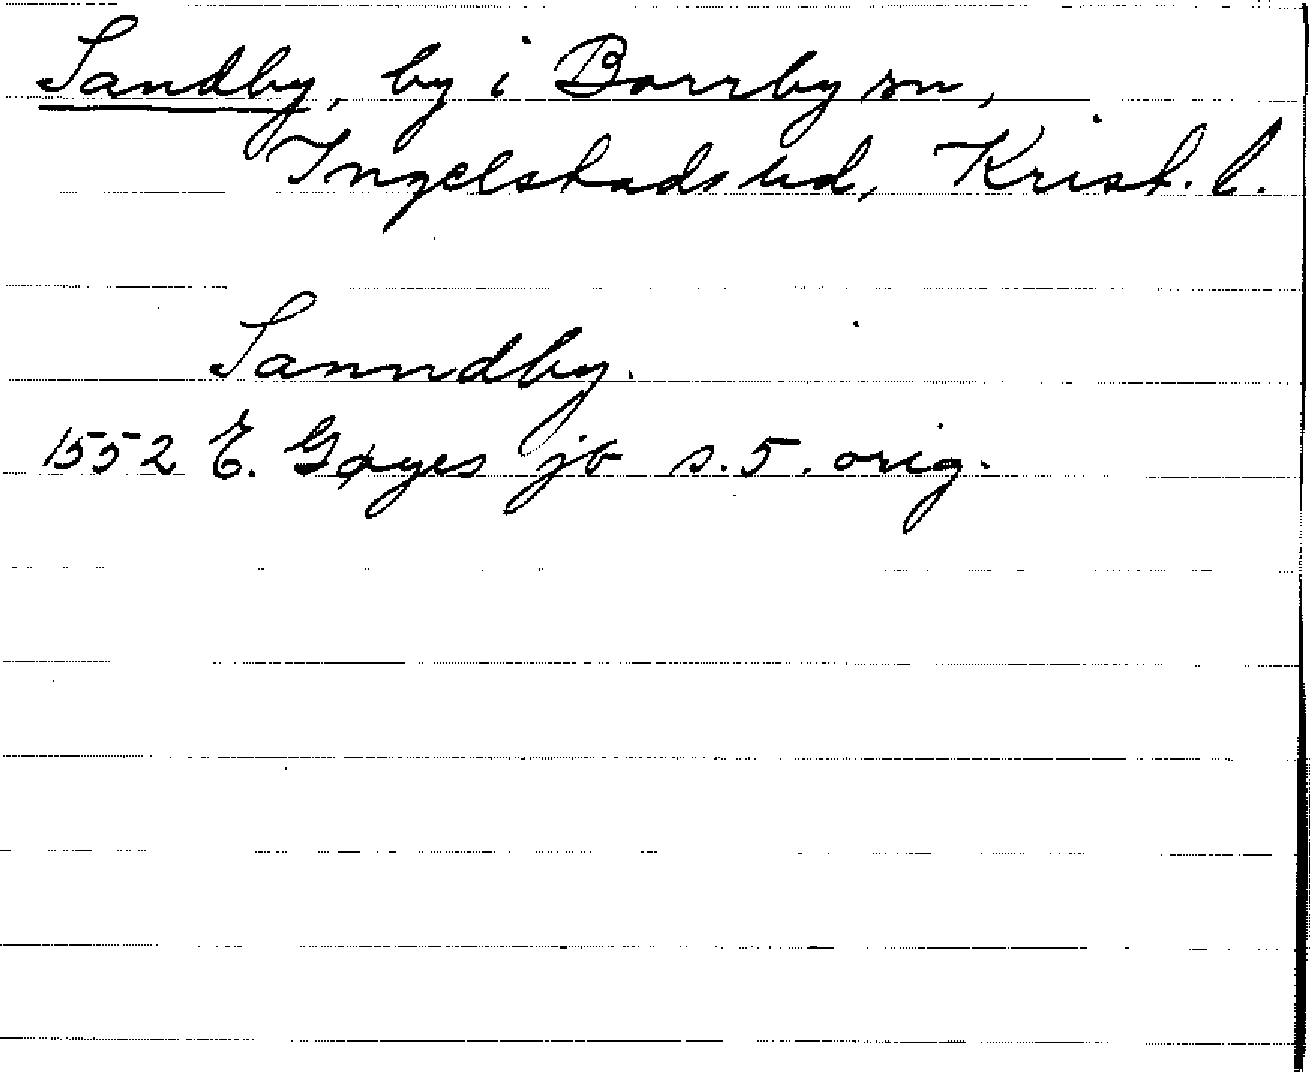 Sandby, by i Borrby sn,
Ingelstads hd, Krist. l.
Sanndby.
1552 E. Gøyes jb s. 5. orig.